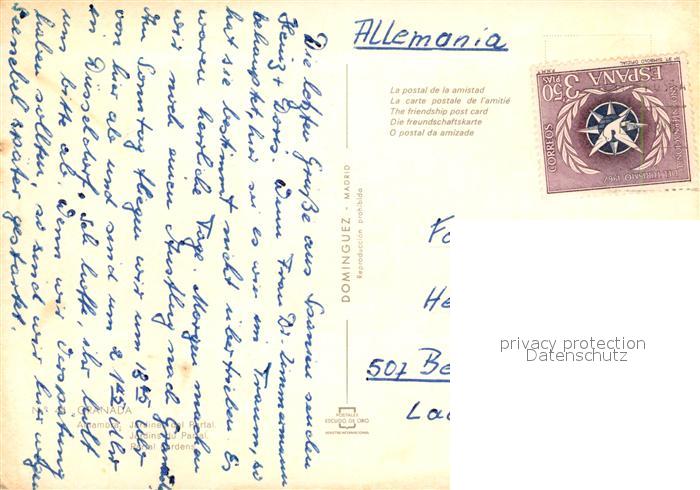 Allemania
La postal de la amistad
La carte postale de l'amitié
The friendship post card
Die freundschaftskarte
O postal da amizade
CORREOS
ESPAÑA
3,50
PTAS
DEL TURISMO 1967
DOMINGUEZ - MADRID
Reproducción prohibida
Die letzten Grüße aus Spanien senden
Heinz + Doris. Wenn Frau Dr. Zimmermann
behauptet, hier sei es wie im Traum, so
hat sie bestimmt nicht übertrieben. Es
waren herrliche Tage. Morgen machen
wir noch einen Ausflug nach Granada
Am Sonntag fliegen wir um 18 45 Uhr
von hier ab und sind um 21 45 Uhr
in Düsseldorf. Ich hoffe, ihr holt
uns bitte ab. Wenn wir Verspätung
haben sollten, so sind wir hier wegen
Nebel später gestartet.
507 Be
GRANADA
Alhambra. Jardines del Partal.
Jardins du Partal.
Partal Gardens.
POSTALES
ESCUDO DE ORO
privacy protection
Datenschutz